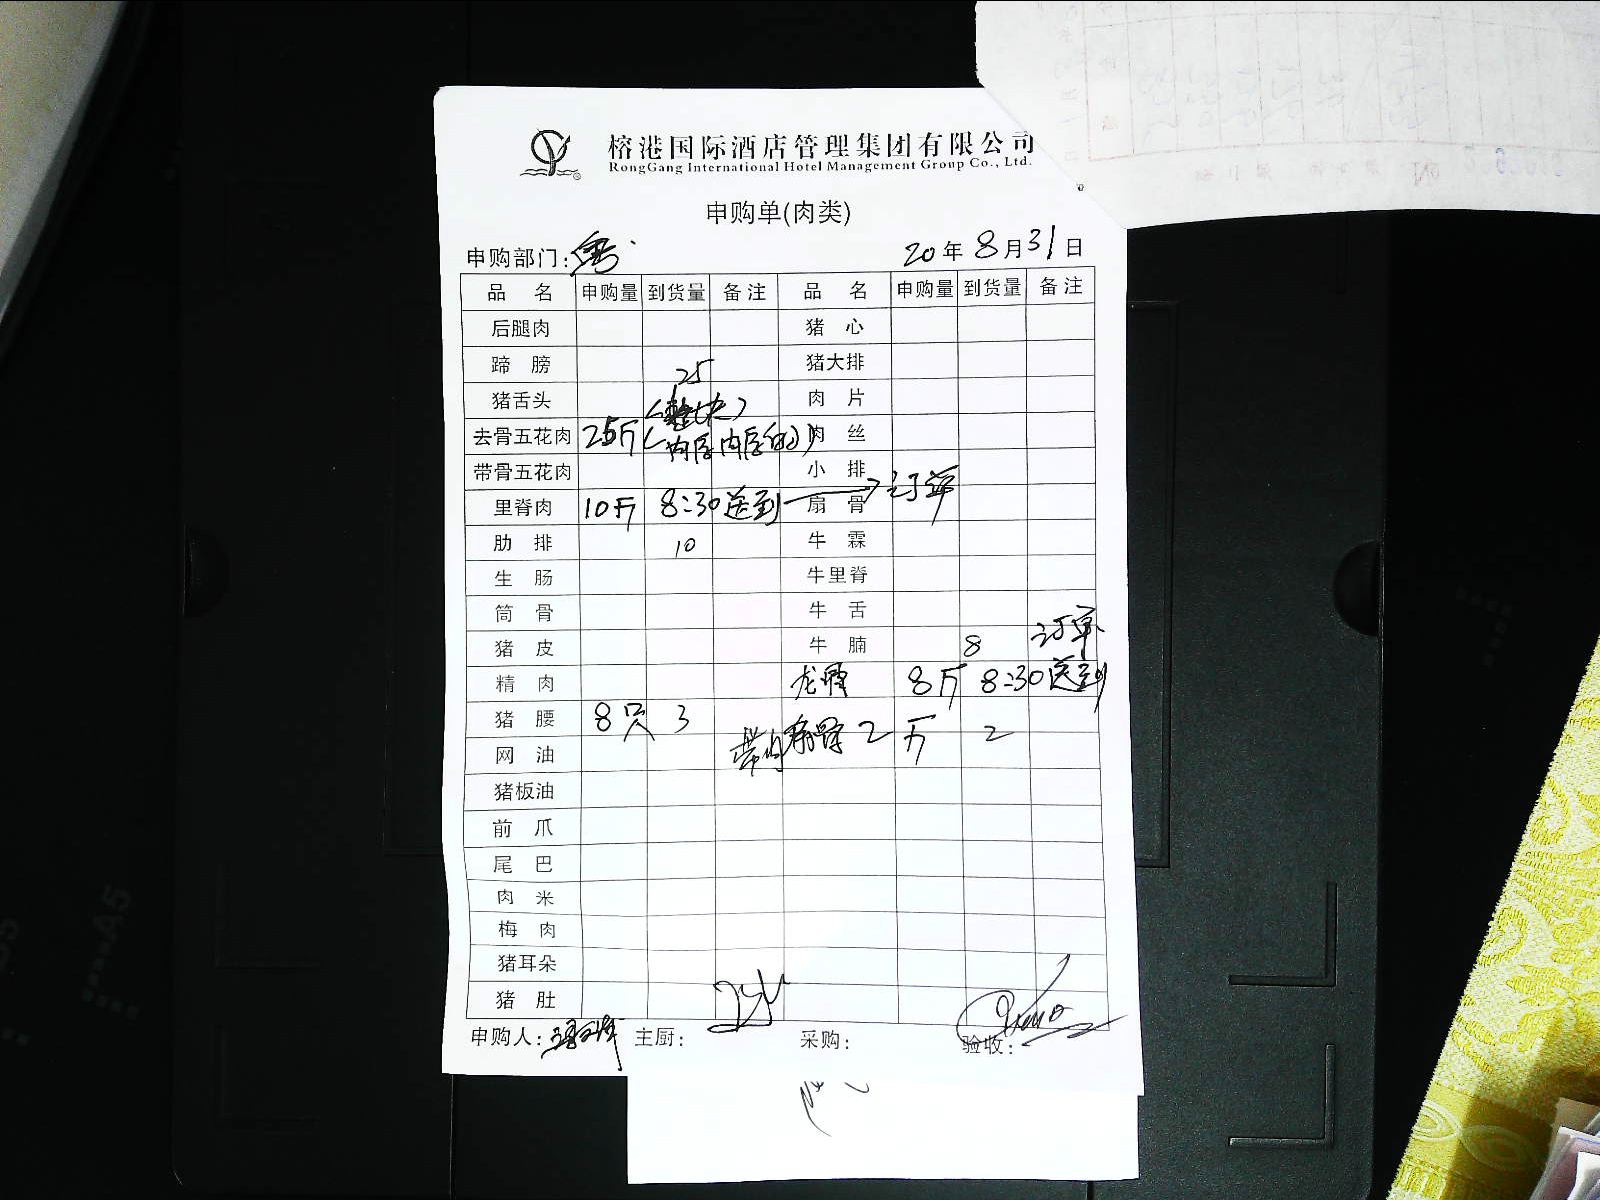 榕港国际酒店管理集团有限公司
RongGang International Hotel Management Group Co., Ltd.
申购单(肉类)
申购部门: 20年8月31日
品名 申购量 到货量 备注 品名 申购量 到货量 备注
后腿肉 猪心
蹄膀 25 猪大排
猪舌头 (整块) 肉片
去骨五花肉 25斤 (肉厚肉厚的) 肉丝
带骨五花肉 小排
里脊肉 10斤 8:30送到 → 订单 扇骨
肋排 10 牛霖
生肠 牛里脊
筒骨 牛舌
猪皮 牛腩 8 订单
精肉 龙骨 8斤 8:30送到
猪腰 8只 3 带肉扇骨 2斤 2
网油
猪板油
前爪
尾巴
肉米
梅肉
猪耳朵
猪肚
申购人: 主厨: 采购: 验收:
A5